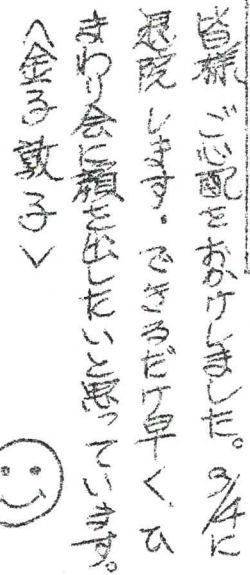 皆様 ご心配をおかけしました。9/4に
退院します。できるだけ早く、ひ
まわり会に顔を出したいと思っています。
<金子敦子>